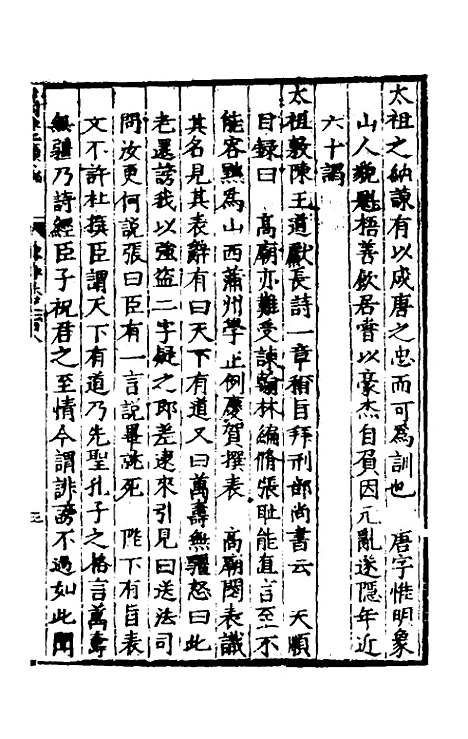 太祖之納諫有以成唐之忠而可為訓也　唐字惟明象
山人貌魁梧善飲居嘗以豪杰自負因元亂遂隱年近
六十謁
太祖敷陳王道獻長詩一章稱旨拜刑部尚書云　天順
目録曰　高廟亦難受諫翰林編脩張耻能直言至不
能容黜為山西蒲州學正例慶賀撰表　高廟閱表識
其名見其表辭有曰天下有道又曰萬壽無疆怒曰此
老還謗我以強盗二字疑之即差逮來引見曰送法司
問汝更何說張曰臣有一言說畢就死　陛下有旨表
文不許杜撰臣謂天下有道乃先聖孔子之格言萬壽
無疆乃詩經臣子祝君之至情今謂誹謗不過如此聞